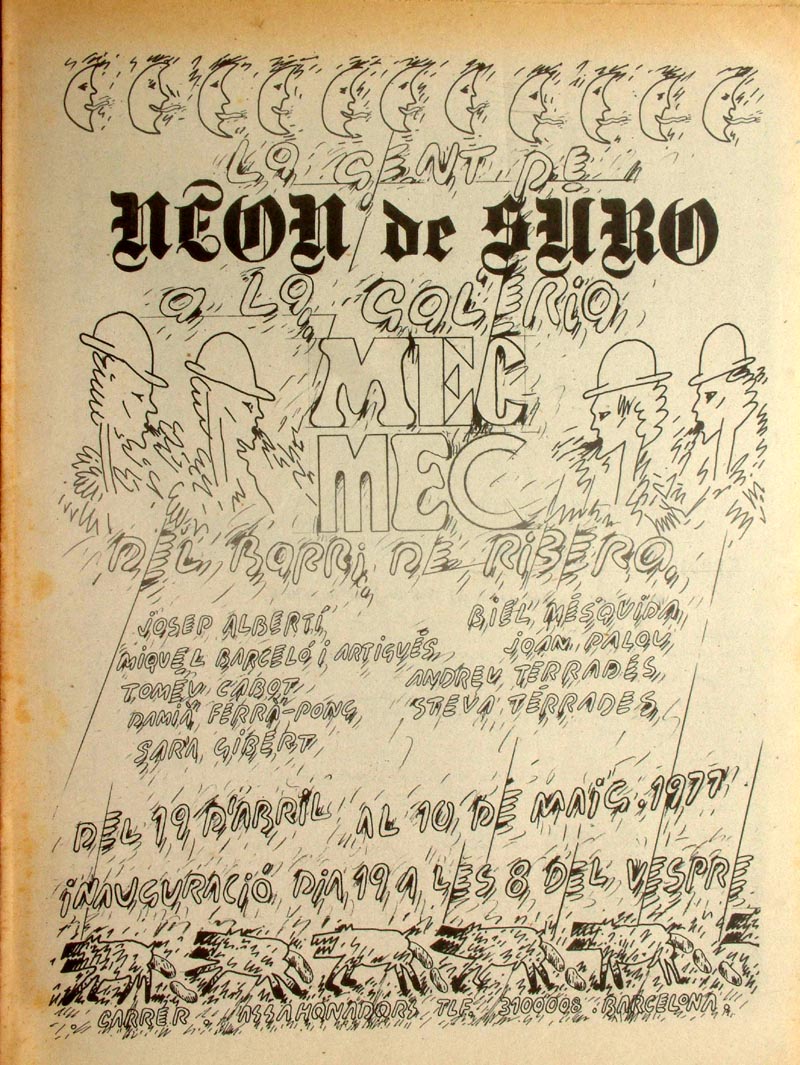 LA GENT DE
NEON de SURO
a LA GAL'ERIA
MEC
MEC
DEL BARRI DE RIBERA
JOSEP ALBERTÍ
MIQUEL BARCELÓ i ARTIGUES
TOMEU CABOT
DAMIÀ FERRÀ-PONÇ
SARA GIBERT
BIEL MESQUIDA
JOAN PALOU
ANDREU TERRADES
STEVA TERRADES
DEL 19 D'ABRIL AL 10 DE MAIG. 1977
iNAUGURACIÓ DIA 19 A LES 8 DEL VESPRE
CARRER ASSAHONADORS TLF. 3100008 . BARCELONA.